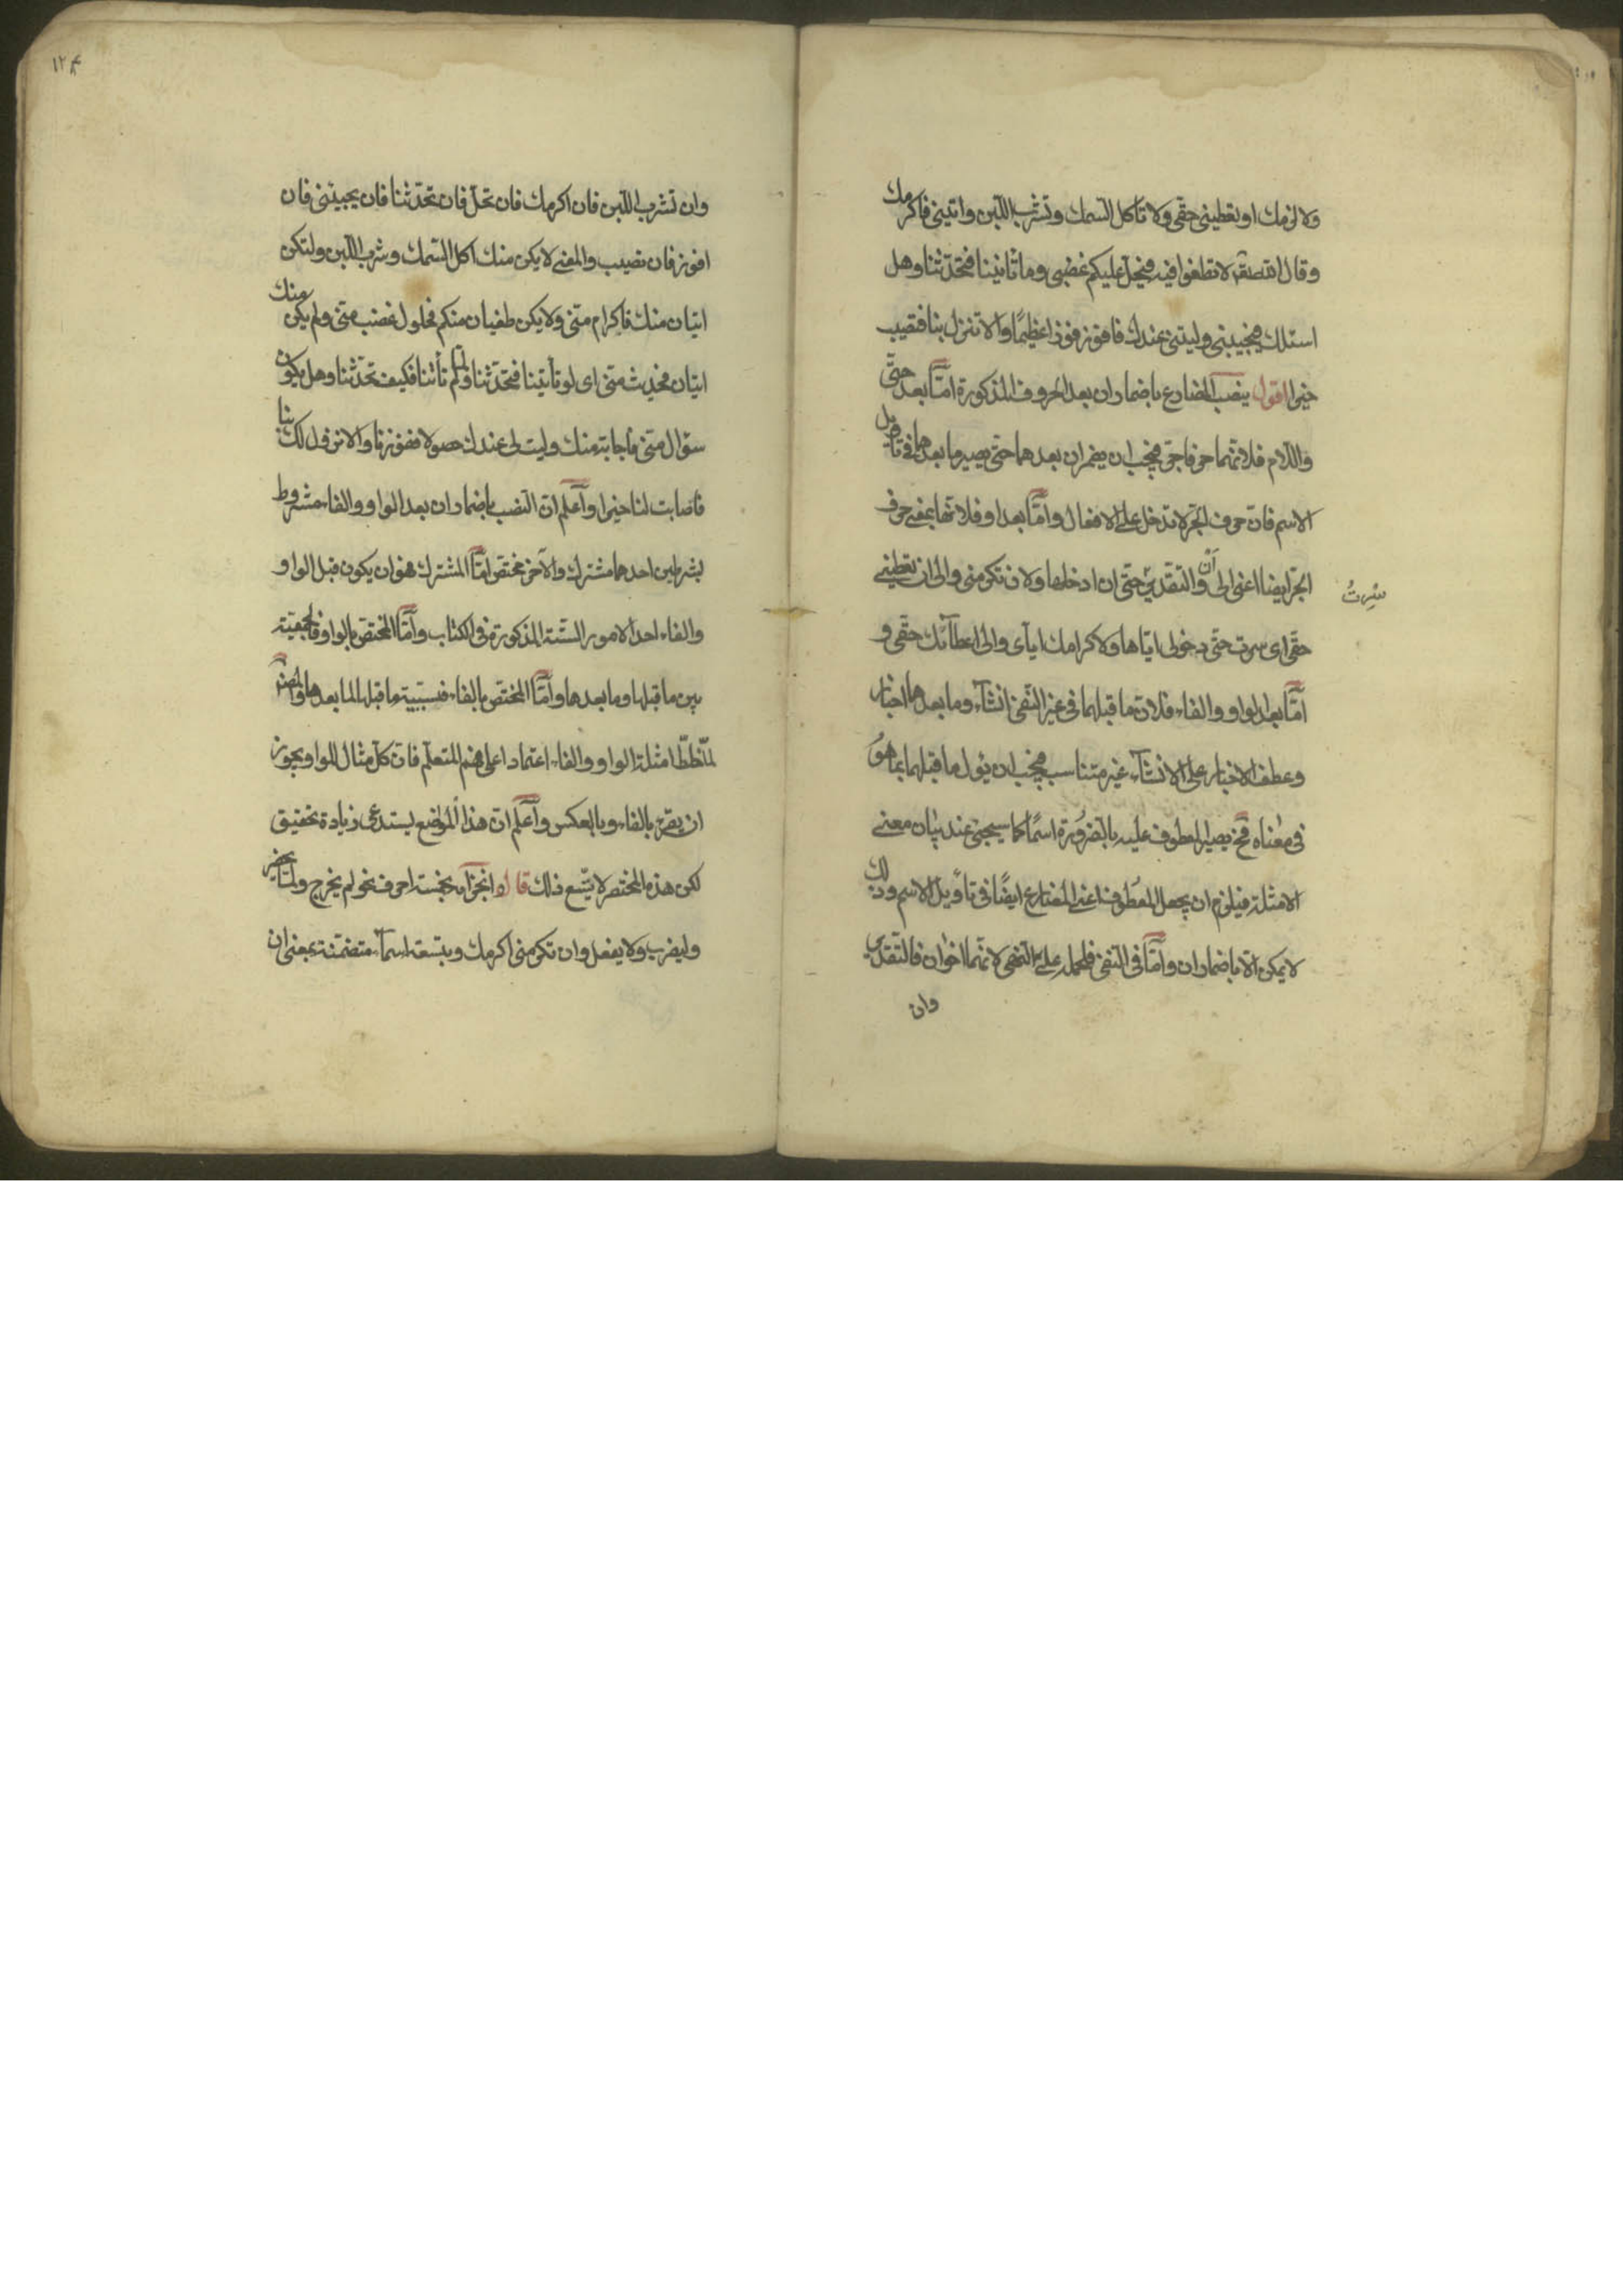 ولالزمك او تعطينى حقى ولا تأكل السمك وتشرب اللبن وايتينى فاكرمك
وقال الله تعالى لا تطغوا فيه فيحل عليكم غضبى وما تاتينا فتحدثنا وهل
اسئلك فتجيبنى وليتنى عندك فافوز فوزا عظيمًا والا تنزل بنا فتصيب
خيرا اقول ينصب المضارع باضمار ان بعد الحروف المذكورة امّا بعد حتّى
واللام فلانهما حرفا جر فيجب ان يضمر ان بعدهما حتى يصير ما بعدهما فى تاويل
الاسم فان حرف الجر لا تدخل على الافعال وامّا بعد او فلانها بمعنى حرف
الجر ايضا اعنى الى والتقدير حتى ان ادخلها ولان تكرمنى والى ان تعطينى
أن
سِرتُ
حقى اى سرت حتى دخولى ايّاها ولاكرامك ايآى والى اعطائك حقى و
امّا بعد الواو والفاء فلان ما قبلهما فى غير النفى انشاء وما بعدهما اخبار
وعطف الاخبار على الانشاء غير متناسب فيجب ان يؤل ما قبلهما بما هو
فى معناه فح يصير المعطوف عليه بالضرورة اسمًا كما سيجئ عند بيان معنى
الامثلة فيلزم ان يجعل المعطوف اعنى المضارع ايضًا فى تاويل الاسم وذلك
لا يمكن الا باضمار ان وامّا فى النفى فلحمله على النهى لانهما اخوان فالتقدير
وان
١٢٤
وان تشرب اللبن فان اكرمك فان تحلّ فان تحدّثنا فان يجيبنى فان
افوز فان نصيب والمعنى لا يكن منك اكل السّمك وشرب اللبن ولتكن
اتيان منك فاكرام منّى ولا يكن طغيان منكم فحلول غضب منّى ولم يكن منك
اتيان فحديث منّى اى لو تأتينا فتحدّثنا ولمّا لم تأتنا فكيف تحدّثنا وهل يكون
سؤال منّى فأجابة منك وليت لى عندك حصولا ففوزنا والا نزول لك بنا
فاصابت لنا خيرا واعلم انّ النصب باضمار ان بعد الواو والفاء مشروط
بشرطين احدهما مشترك والآخر مختصّ امّا المشترك فهو ان يكون قبل الواو
والفاء احد الامور السّتة المذكورة فى الكتاب وامّا المختصّ بالواو فالجمعيّة
بين ما قبلها وما بعدها وامّا المختصّ بالفاء فسببية ما قبلها لما بعدها والمصنّف
امثلة الواو والفاء اعتمادا على فهم المتعلّم فانّ كلّ مثال للواو يجوز
ان يقرء بالفاء وبالعكس واعلم انّ هذا الموضع يستدعى زيادة تحقيق
لكن هذه المختصر لا يتّسع ذلك قال وانجزامه بخمسة احرف نحو لم يخرج ولمّا يحضر
وليضرب ولا يفعل وان تكرمنى اكرمك وبتسعة اسمآء متضمّنة بمعنى ان